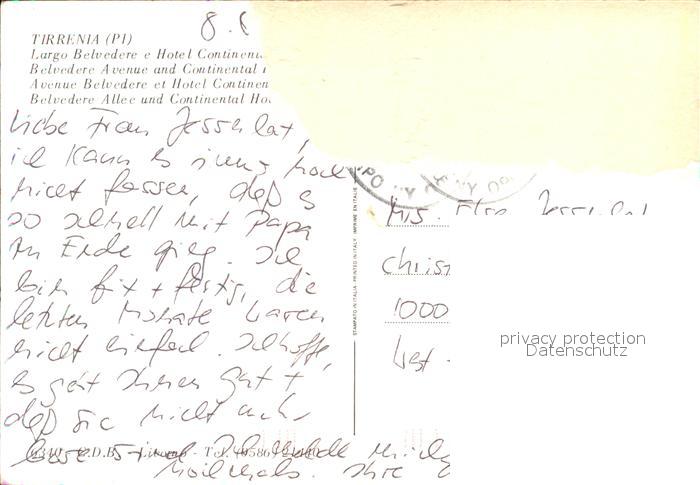 8.
TIRRENIA (PI)
Largo Belvedere e Hotel Continen
Belvedere Avenue and Continental
Avenue Belvedere et Hotel Continen
Belvedere Allee und Continental Ho
Liebe Frau
ich kann es immer noch
nicht fassen, daß es
so schnell mit Papa
zu Ende ging. Ich
bin fix + fertig, die
letzten Monate waren
nicht einfach. Ich hoffe,
es geht Ihnen gut +
daß sie nicht mehr
böse sind. Ich melde mich
nochmals. Ihre
C.D.B. - Livorno - Tel. (0586)
STAMPATO IN ITALIA - PRINTED IN ITALY - IMPRIMÉ EN ITALIE
Christ
1000
West
privacy protection
Datenschutz